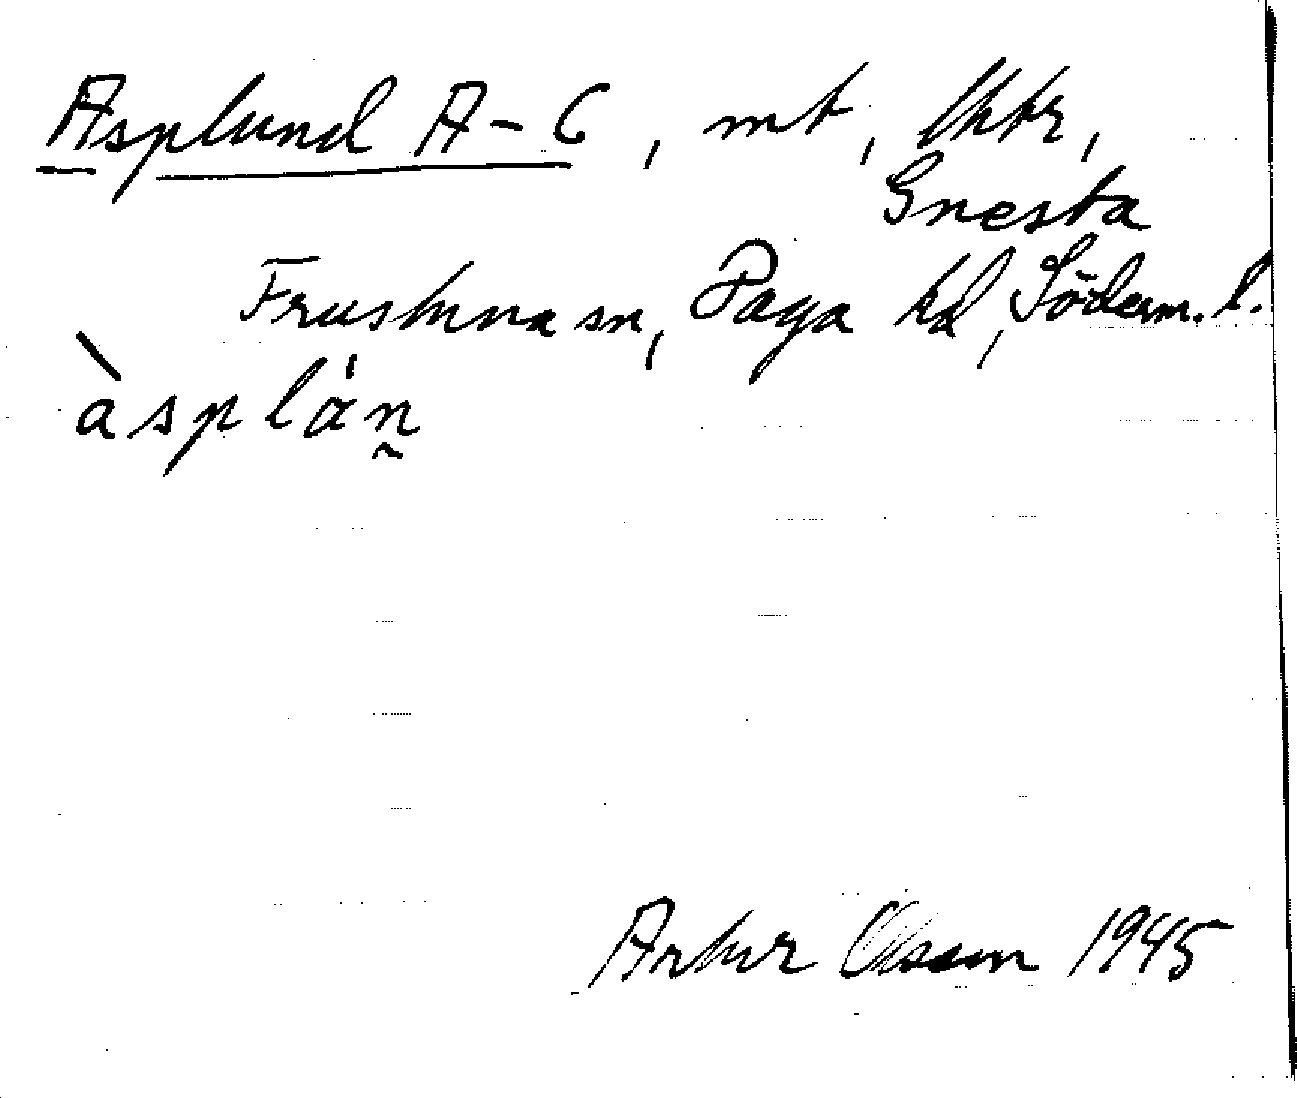 Asplund A-C, mt, Uktr,
Gnesta
Frustuna sn, Daga hd, Söderm. l.
àsplán̰
Artur Olsson 1945